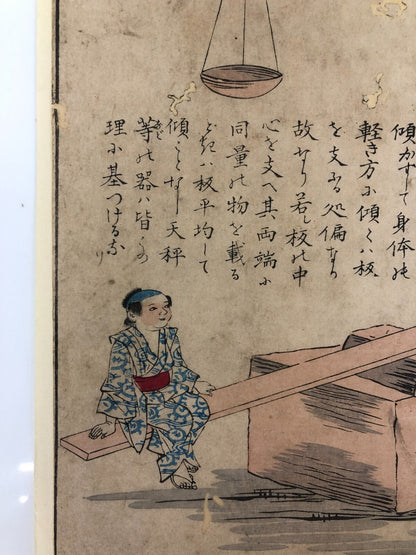 傾かずして身体の
軽き方に傾くハ板
を支ふる処偏なる
故なり若し板の中
心を支へ其両端に
同量の物を載る
ときハ板平均して
傾くことなし天秤
等の器ハ皆この
理に基づけるなり